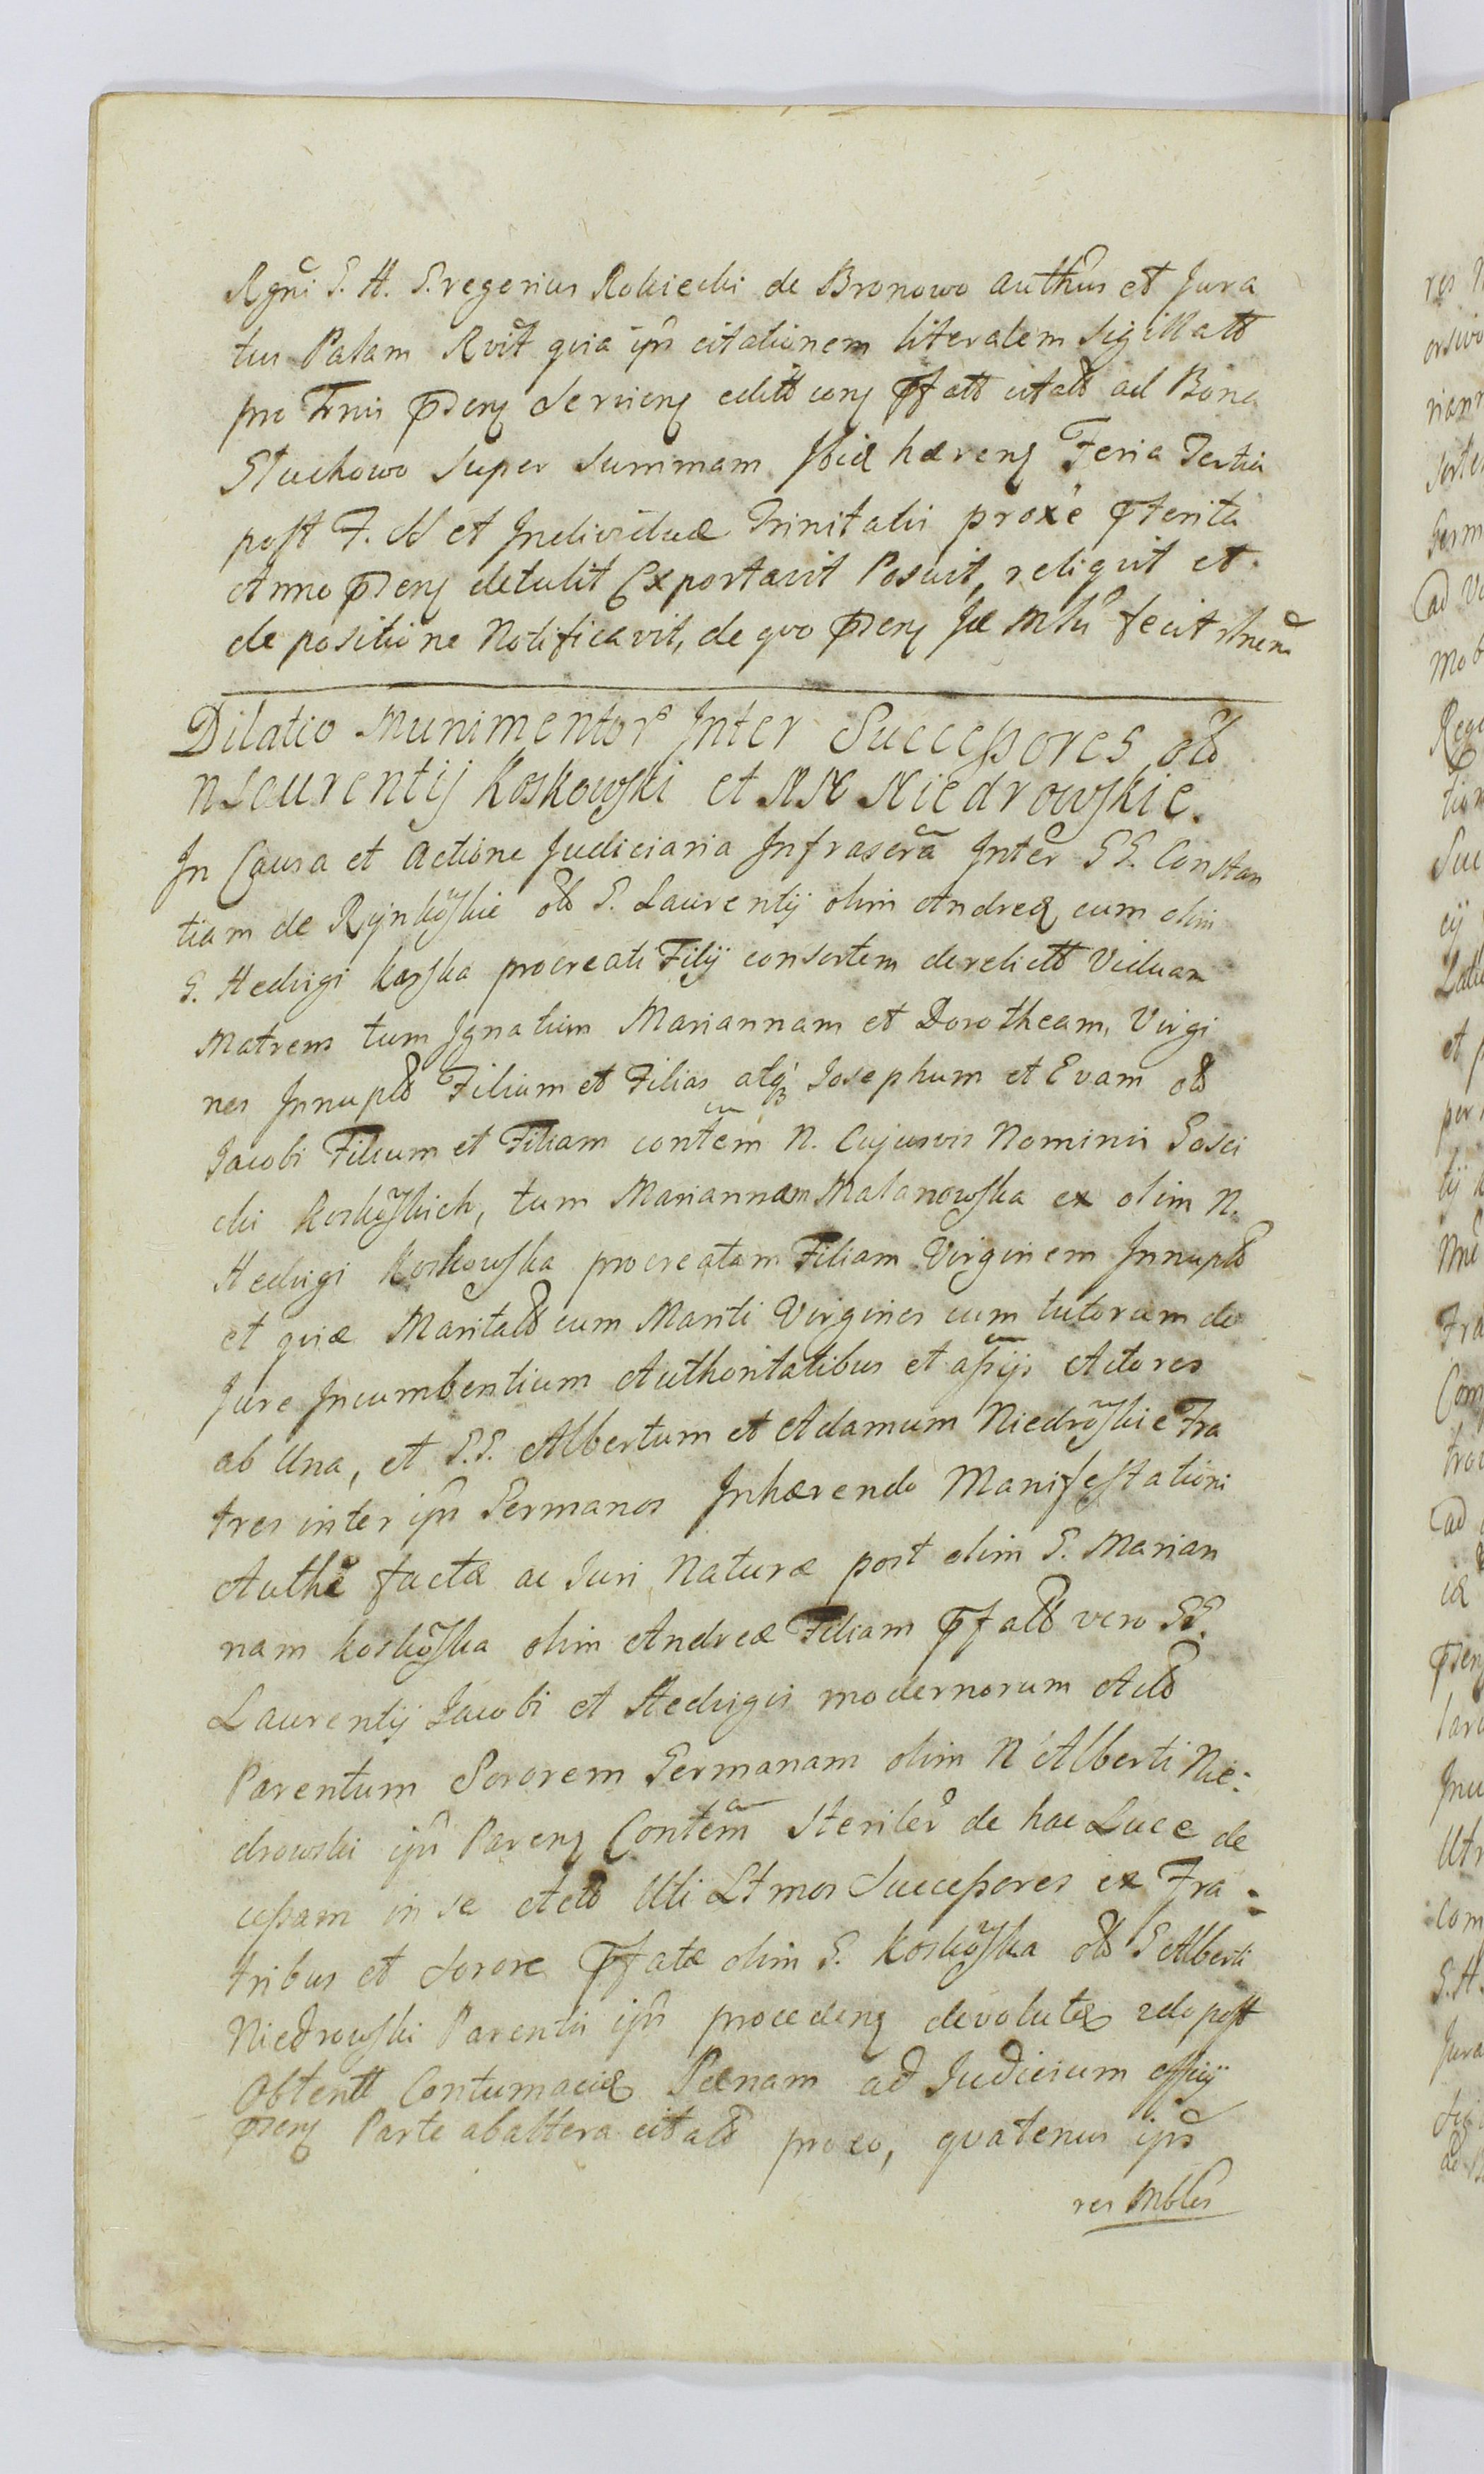 Rgni G. H. Gregorius Rokiecki de Bronowo authus et Jura
tus Palam Rvit quia ipn citationem literalem Sigillatt
pro Trnis pnserq servienq editt conq pfatt citatt ad Bona
Stuchowo super summam Ibid hærenq Feria Tertia
post F. SS et Individuæ Trinitatis proxe pterita
Anno pnserq detulit Exportavit Posuit, reliquit et
de positione Notificavit, de quo pnserq Jæ Mtu fecit rhnem
Dilatio Munimentor Inter Successores olo
n Laurentij Koskowski et NN Niedrowskie.
In Causa et Actione Judiciaria Infrascra Inter GG. Constan
tiam de Rynkoskie olo G. Laurentij olim Andreæ cum olim
G. Hedvigi Karska procreati Filij consortem derelictt Viduam
Matrem tum Ignatium Mariannam et Dorotheam, Virgi
nes Innupto Filium et Filias atq Josephum et Evam olo
Jacobi Filium et Filiam contem N. Cujusvis Nominis Gosci
cki Koskoskich, tum Mariannam Malanowska ex olim N.
Hedvigi Koskowska procreatam Filiam Virginem Innupto
et quæ Maritato cum Mariti Virgines cum tutorum de
Jure Incumbentium Authoritatibus et assijs Actores
ab Una, et G.G. Albertum et Adamum Niedroskie Fra
tres inter ipn Germanos Inhærendo Manifestationi
Authe factæ ac Juri Naturæ post olim G. Marian
nam Koskoska olim Andreæ Filiam pfato vero GG.
Laurentij Jacobi et Hedvigis modernorum Acto
Parentum Sororem Germanam olim N Alberti Nie:
drowski ipn Parenq Contem Steriler de hac Luce de
cessam in se Acto Uti Ltmos Successores ex Fra:
tribus et Sorore pfatæ olim G. Koskoska olo G Alberti
Niedrowski Parentis ipn procedenq devolutæ zelo post
Obtentt Contumaciæ Pænam ad Judicium officij
pnserq Parte ab altera citato pro eo, quatenus ips
res Mbles